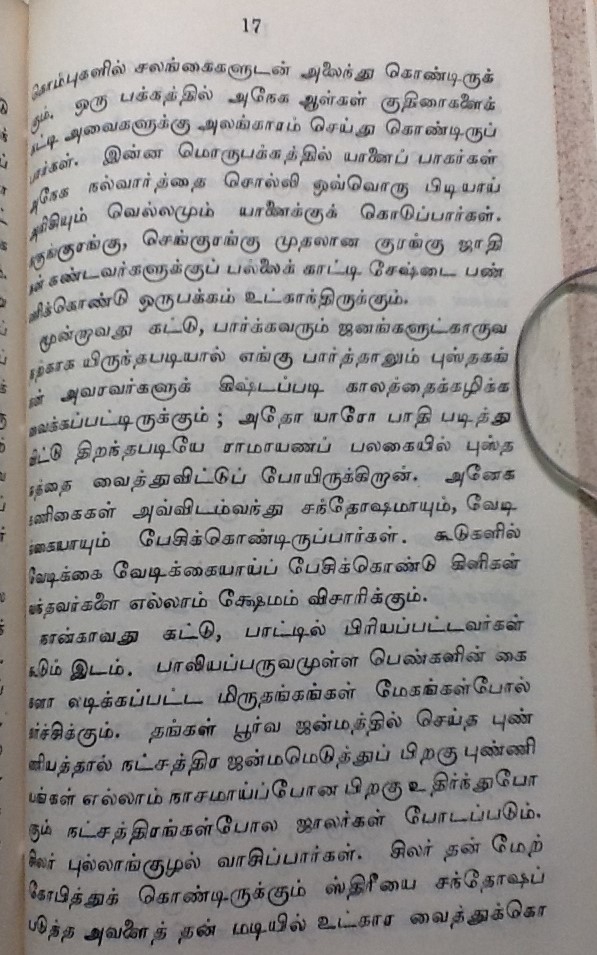 17
கொம்புகளில் சலங்கைகளுடன் அலைந்து கொண்டிருக்
கும். ஒரு பக்கத்தில் அநேக ஆள்கள் குதிரைகளைக்
கட்டி அவைகளுக்கு அலங்காரம் செய்து கொண்டிருப்
பார்கள். இன்ன மொருபக்கத்தில் யானைப் பாகர்கள்
அநேக நல்வார்த்தை சொல்லி ஒவ்வொரு பிடியாய்
அரிசியும் வெல்லமும் யானைக்குக் கொடுப்பார்கள்.
கருங்குரங்கு, செங்குரங்கு முதலான குரங்கு ஜாதி
கள் கண்டவர்களுக்குப் பல்லைக் காட்டி சேஷ்டை பண்
ணிக்கொண்டு ஒருபக்கம் உட்காந்திருக்கும்.
மூன்றுவது கட்டு, பார்க்கவரும் ஜனங்களுட்காருவ
தற்காக யிருந்தபடியால் எங்கு பார்த்தாலும் புஸ்தகங்
கள் அவரவர்களுக் கிஷ்டப்படி காலத்தைக்கழிக்க
வைக்கப்பட்டிருக்கும் ; அதோ யாரோ பாதி படித்து
விட்டு திறந்தபடியே ராமாயணப் பலகையில் புஸ்த
கத்தை வைத்துவிட்டுப் போயிருக்கிறான். அனேக
கணிகைகள் அவ்விடம்வந்து சந்தோஷமாயும், வேடி
க்கையாயும் பேசிக்கொண்டிருப்பார்கள். கூடுகளில்
வேடிக்கை வேடிக்கையாய்ப் பேசிக்கொண்டு கிளிகள்
வந்தவர்களை எல்லாம் க்ஷேமம் விசாரிக்கும்.
நான்காவது கட்டு, பாட்டில் பிரியப்பட்டவர்கள்
கூடும் இடம். பாலியப்பருவமுள்ள பெண்களின் கை
களா லடிக்கப்பட்ட மிருதங்கங்கள் மேகங்கள்போல்
கர்ச்சிக்கும். தங்கள் பூர்வ ஜன்மத்தில் செய்த புண்
ணியத்தால் நட்சத்திர ஜன்மமெடுத்துப் பிறகு புண்ணி
யங்கள் எல்லாம் நாசமாய்ப்போன பிறகு உதிர்ந்துபோ
கும் நட்சத்திரங்கள்போல ஜாலர்கள் போடப்படும்.
சிலர் புல்லாங்குழல் வாசிப்பார்கள். சிலர் தன் மேற்
கோபித்துக் கொண்டிருக்கும் ஸ்திரீயை சந்தோஷப்
படுத்த அவளைத் தன் மடியில் உட்கார வைத்துக்கொ